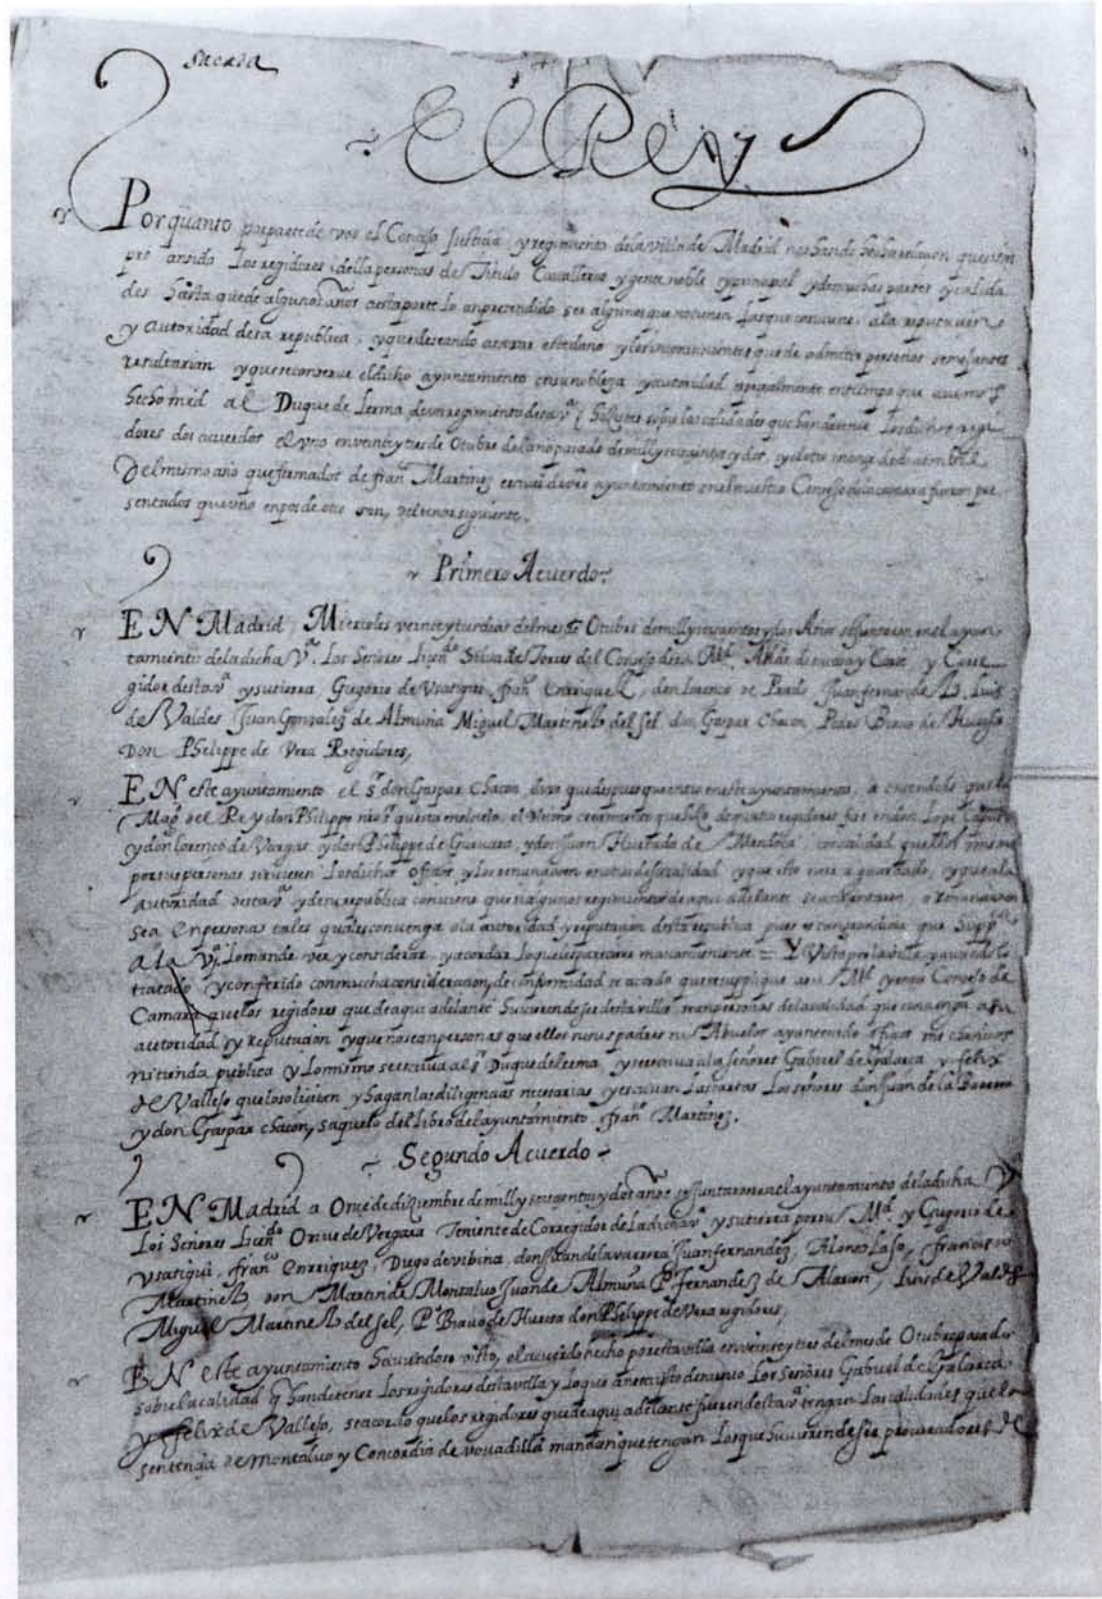 sacada
El Rey
Por quanto por parte de vos el Concejo Justicia y regimiento dela villa de Madrid nos ha sido hecha relacion que siem
pre an sido los regidores della personas de Titulo Cavalleros y gente noble y principal y de muchas partes y calida
des hasta que de algunos años a esta parte lo an pretendido ser algunos que no tienen las que conviene a la reputacion
y autoridad desa republica, y que deseando atajar este daño y los inconvinientes que de admitir personas semejantes
resultarian y que se conserve el dicho ayuntamiento en su nobleza y autoridad specialmente en tiempo que avemos
hecho mrd al Duque de Lerma de un regimiento desa vª hizistes sobre las calidades que han de tener los dichos regi
dores dos acuerdos el uno en veinte y tres de Otubre del año pasado de mill y seiscientos y dos, y el otro en onze de diziembre
del mismo año que firmados de franº Martinez escrivº de vro ayuntamiento en el nuestro Consejo de la camara fueron pre
sentados que uno en pos de otro son, del tenor siguiente.
Primero Acuerdo
EN Madrid, Miercoles veinte y tres dias del mes de Otubre de mill y seiscientos y dos Años se juntaron en el ayun
tamiento de la dicha Vª. Los Señores Licendº Silva de Torres del Consejo de su Md. Alcalde de su casa y Corte y Corre
gidor desta vª y su tierra, Gregorio de Usategui, franº Enriquez, don Lorenço de Prado, Juan fernandez, Luis
de Valdes Juan Gonzalez de Almunia Miguel Martinez del sel don Gaspar Chacon Pedro Bravo de Huerta
Don Phelippe de Vera Regidores,
EN este ayuntamiento el sr don Gaspar Chacon dixo que despues que entro en este ayuntamiento, a entendido que la
Magd del Rey don Phelippe nro sr que esta en el cielo, el ultimo crecimiento que hizo de quatro regidores fue en don Lope Çapata
y don Lorenço de Vargas, y don Phelippe de Guevara, y don Juan Hurtado de Mendoça, con calidad que ellos mismos
por sus personas sirviesen los dichos oficios y los renunciasen en otros desta calidad y que esto se a guardado, y que a la
autoridad desta vª y desta republica conviene que si algunos regimientos de aqui adelante se aumentaren, o renunciaren
sea en personas tales quales convenga a la autoridad y reputacion desta republica pues es tan grandiosa que Suppca
a la vª lo mande ver y considerar y acordar lo que les pareciere mas conveniente = Y Visto por la villa y aviendolo
tratado y conferido con mucha consideracion, de conformidad se acordo que se supplique a su Md y en su Consejo de
Camara que los regidores que de aqui adelante huvieren de ser desta villa sean personas de la calidad que convenga a su
autoridad y reputacion y que no sean personas que ellos ni sus padres ni Abuelos ayan tenido officios mecanicos
ni tienda publica y lo mismo se escriva al sr Duque de Lerma y se escriva a los señores Gabriel de Galarça y felix
de Vallejo que lo soliciten y hagan las diligencias necesarias y escrivan las cartas los señores don Juan de la Barrera
y don Gaspar chacon, saquelo del libro del ayuntamiento franº Martinez.
Segundo Acuerdo
EN Madrid a Once de diziembre de mill y seiscientos y dos años se juntaron en el ayuntamiento de la dicha Vª
Los Señores Licendo Orive de Vergara Teniente de Corregidor de la dicha vª y su tierra por su Md. y Gregorio de
Usatigui, franco Enrriquez, Diego de vibina, don Juan de la varrera Juan fernandez, Alonso Laso, francisco
Martinez, don Martin de Montalvo Juan de Almuña Pº fernandez de Alarcon, Luis de Valdes
Miguel Martinez del sel, Pº Bravo de Huerta don Phelippe de Vera regidores,
EN este ayuntamiento haviendose visto, el acuerdo hecho por esta villa en veinte y tres del mes de Otubre pasado
sobre la calidad q han de tener los regidores desta villa y lo que an escripto de nuevo los señores Gabriel de Galarça
y felix de Vallejo, se acordo que los regidores que de aqui adelante fueren desta vª tengan las calidades que la
sentencia de montalvo y Concordia de vovadilla mandan que tengan los que huvieren de ser procuradores de